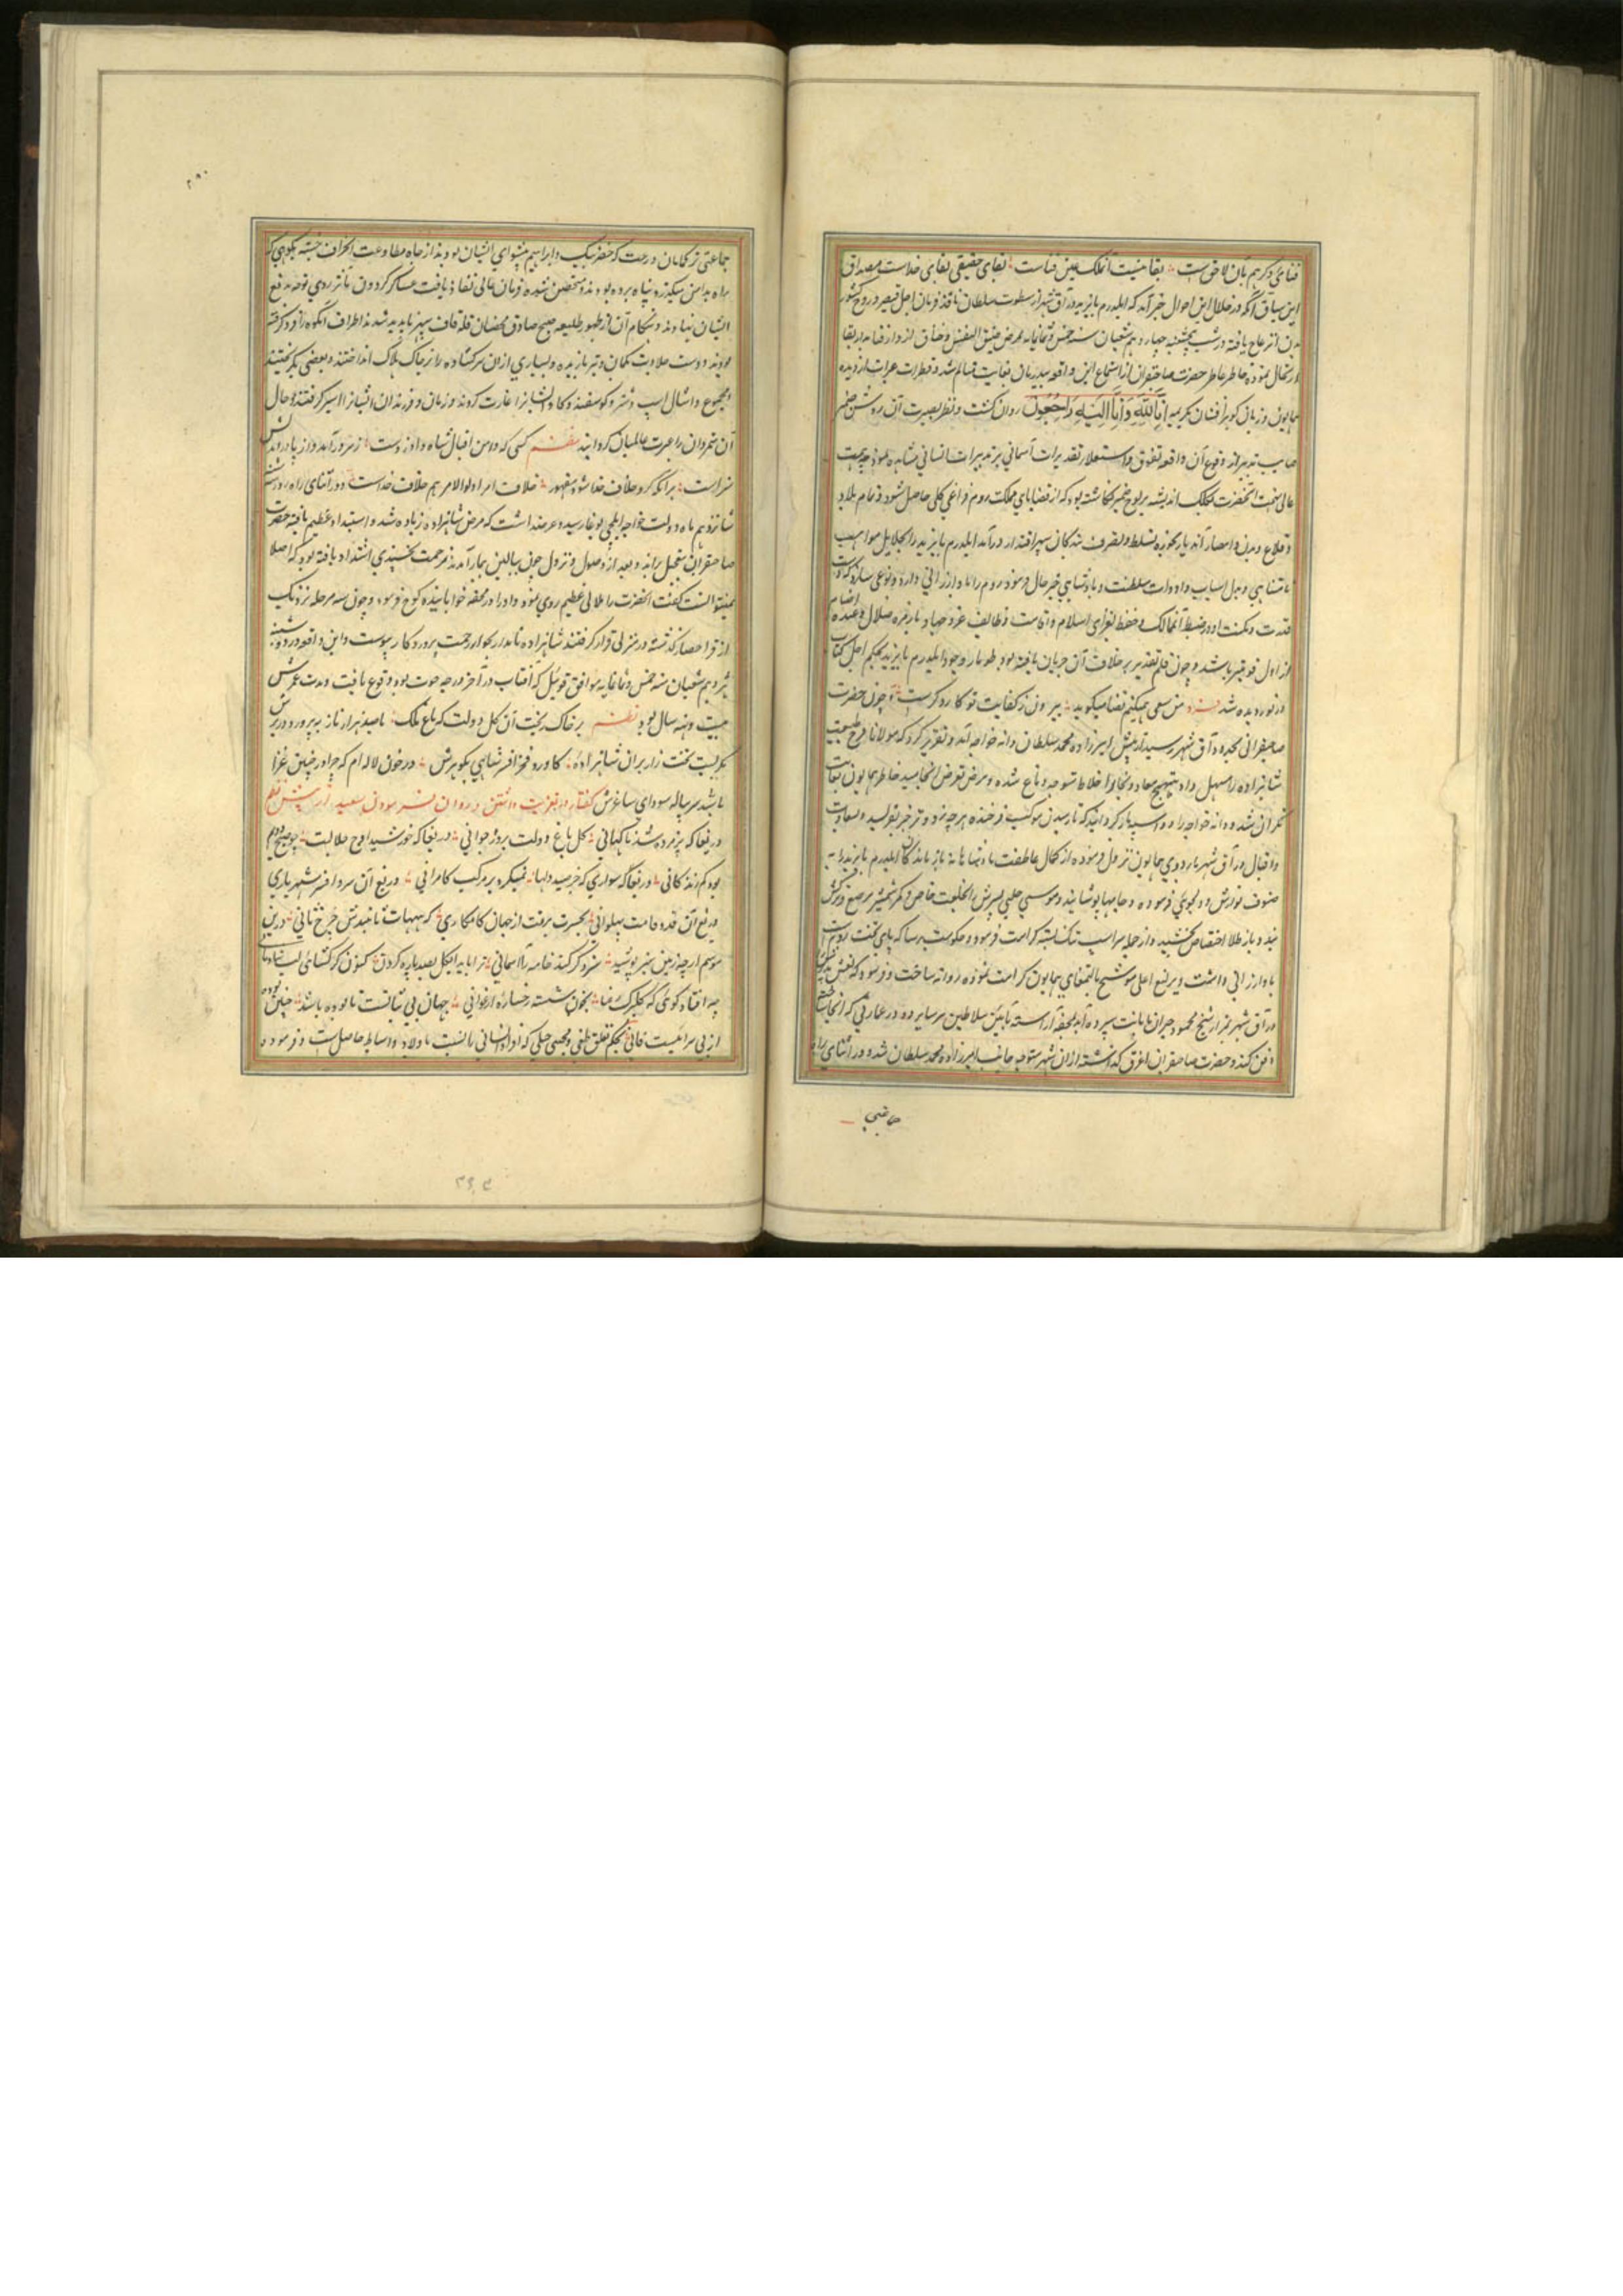 فنای دگر هم بآن لاحق است بقا نیست آنملک عین فناست بقای حقیقی بقای خداست مصداق
این سیاق آنکه در خلال این احوال خبر آمد که ایلدرم بایزید در آق شهر از سطوت سلطان نافذ فرمان اجل قیصر روح کشور
بدن انزعاج یافته در شب پنجشنبه چهاردهم شعبان سنه خمس و ثمانمایه بمرض ضیق النفس و خناق از دار فنا بدار بقا
ارتحال نموده خاطر عاطر حضرت صاحبقران از استماع این واقعه بغایت متالم شد و قطرات عبرات از دیده
همایون و زبان بکریمه اِنَّا لِلّٰهِ وَ اِنَّا اِلَیْهِ رَاجِعُونَ روان گشت و نظر بصیرت آن روشن ضمیر
صایب تدبیر از وقوع آن واقعه تفوق و استعلاء تقدیرات آسمانی بر تدبیرات انسانی مشاهده نمود چه همت
عالی نهمت آنحضرت بکلک اندیشه بر لوح ضمیر نگاشته بود که از قضایای مملکت روم فراغی کلی حاصل شود و تمام بلاد
و قلاع و مدن و امصار آن دیار بحوزه تسلط و تصرف بندگان سپهر اقتدار درآمد ایلدرم بایزید را بجلایل مواهب
نامتناهی و بذل اسباب و ادوات سلطنت و پادشاهی جبر حال فرمود روم را باو ارزانی دارد و نوعی سازد که
قدرت و مکنت او در ضبط آنممالک و حفظ ثغرای اسلام و اقامت وظایف غزو و جهاد با زمره ضلال و عبده اصنام
از اول قویتر باشد و چون قلم تقدیر بر خلاف آن جریان یافته بود طومار وجود ایلدرم بایزید بحکم اجل کتاب
در نوردیده شد فرد من سعی همیکنم قضا میگوید بیرون ز کفایت تو کار دگرست و چون حضرت
صاحبقرانی بحدود آق شهر رسید از پیش امیرزاده محمد سلطان دانه خواجه آمد و تقریر کرد که مولانا فرخ طبیب
شاهزاده را مسهل داد بتهییج مواد و بخار اخلاط متوجه دماغ شده و مرض تعرض انجامید خاطر همایون بغایت
نگران شد و دانه خواجه را دو اسبه باز گردانید که تا رسیدن موکب فرخنده هر چه زودتر خبر نو رسید و بسعادت
و اقبال در آق شهر باردوی همایون نزول فرموده از کمال عاطفت پادشاهانه باز ماندگان ایلدرم بایزید را به
صنوف نوازش و دلجوئی فرموده و جامها پوشانید و موسی چلبی پسرش را بخلعت خاص و کمر شمشیر مرصع و ترکش
و باز طلا اختصاص بخشید و از جمله مراسب تنک بسته کرامت فرموده و حکومت برسا که پای تخت روم است
باو ارزانی داشت و یرلیغ اعلی موشح بالتمغای همایون کرامت نموده روانه ساخت و فرمود که نعش پدر را که
در آق شهر بمزار شیخ محمود حیران بامانت سپرده اند بمحفه آراسته بآیین سلاطین برسا برده در عمارتی که آنجا ساخته
دفن کند و حضرت صاحبقران اغرق گذاشته از آن شهر متوجه جانب امیرزاده محمد سلطان شد و در اثنای راه
جماعتی
۲۸۰
جماعتی ترکمانان درغت که خضر بیک و ابراهیم پیشوای ایشان بودند از جاده مطاوعت انحراف جسته بکوهی که
راه بدامن میگیرد پناه برده بودند و متحصن شده فرمان عالی نفاذ یافت عساکر گردون مآثر روی توجه بدفع
ایشان نهادند و هنگام آن از ظهور طلیعه صبح صادق متحصنان قله قاف سپهر ناپدید شدند اطراف آنکوه را فرو گرفته
بودند و دست جلادت بکمان و تیر یازیده و بسیاری از آن سرکشان را بر خاک هلاک انداختند و بعضی بگریختند
و مجموع و اثقال اسپ و شتر و گوسفند و گاو ایشانرا غارت کردند و زنان و فرزندان ایشانرا اسیر گرفتند و حال
آن متمردان را عبرت عالمیان گردانید نظم کسی که دامن اقبال شاه داد ز دست ز سر درآمد و از پا درآمدنش
سزاست برآنکه کرد خلاف خدا شود مقهور خلاف امر اولوالامر هم خلاف خداست و در اثنای راه روز
شانزدهم ماه دولت خواجه ایلچی بوغا رسید و عرضداشت که مرض شاهزاده زیاده شد و اشتداد عظیم یافته حضرت
صاحبقران بتعجیل براند و بعد از وصول و نزول چون ببالین بیمار آمدند زحمت بحیثیتی اشتداد یافته بود که اصلا
نمیتوانست گفت آنحضرت را ملالی عظیم روی نمود و او را در محفه خوابانیده کوچ فرمود و چون سه مرحله نزدیک
از قرا حصار گذشته در منزلی قرار گرفتند شاهزاده نامدار بجوار رحمت پروردگار پیوست و این واقعه در دوشنبه
هژدهم شعبان سنه خمس و ثمانمایه موافق قوی ئیل که آفتاب در آخر درجه حوت بود وقوع یافت و مدت عمرش
بیست و نه سال بود نظم بر خاک ریخت آن گل دولت که باغ ملک با صد هزار ناز بپرورد در برش
بگریست تخت زار بران شاهزاده کاورد فخر افسر شاهی بگوهرش در خون لاله ام که چرا در چنین عزا
باشد سر پیاله سودای ساغرش گفتار در تعزیت داشتن و روان فرمودن سعید ز پیش نظم
دریغا که پژمرده شد ناگهانی گل باغ دولت بروز جوانی دریغا که خورشید اوج جلالت چو صبح دوم
بود کم زندگانی دریغا که سواری که جز صید دلها نمیکرد بر مرکب کامرانی دریغ آن سر و افسر شهریاری
دریغ آن قد و قامت پهلوانی بحسرت برفت از جهان کامکاری که همتاش نابیندش چرخ ثانی درین
موسم ار چه زمین سبز پوشید سزد گر کبود جامه را آسمانی ترا باید ای گل بصد پاره کردن کنون گر گشائی لب شادمانی
چه افتاد گوئی که گلبرگ رعنا بخون شسته رخساره ارغوانی جهان بی ثباتست تا بوده باشد چنین بوده
از پی سرائیست فانی بحکم تعلق طبعی و محبتی جبلی که افراد انسانی را نسبت با اولاد و اسباط حاصل است و فرموده
۳۶۳